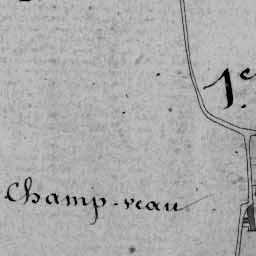 1e
Champ-veau